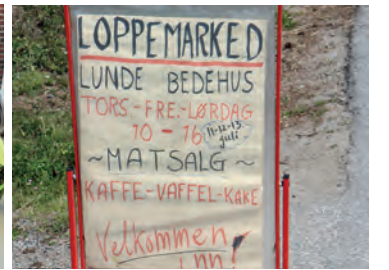 LOPPEMARKED
LUNDE BEDEHUS
TORS-FRE.-LØRDAG
10-16 11-12-13. juli
~MATSALG~
KAFFE-VAFFEL-KAKE
Velkommen
inn!